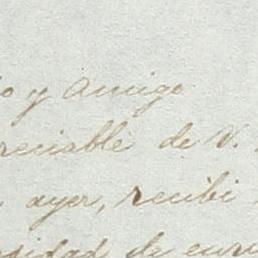 o y amigo
reciable de V.
ayer, recibi
sidad de curi